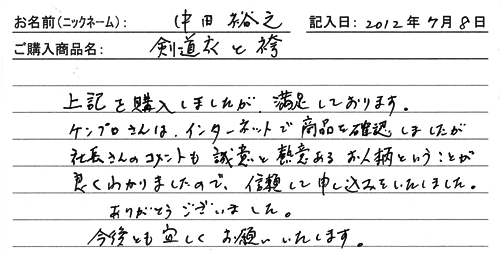 お名前(ニックネーム): 中田 裕之 記入日: 2012年7月8日
ご購入商品名: 剣道衣と袴
上記を購入しましたが、満足しております。
ケンプロさんは、インターネットで商品を確認しましたが
社長さんのコメントも誠意と熱意あるお人柄ということが
良くわかりましたので、信頼して申し込みをいたしました。
ありがとうございました。
今後とも宜しくお願いいたします。